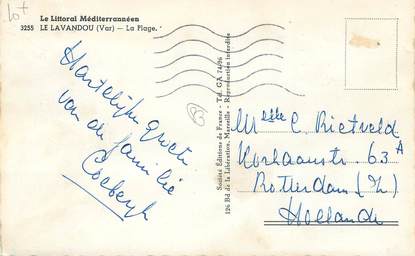 Le Littoral Méditerranéen
3255 LE LAVANDOU (Var) — La Plage.
Hartelijke groeten
van de familie
Société Editions de France - Tel. GA 74/96
126 Bd de la Libération, Marseille - Reproduction interdite
Melle C. Rietveld
63 A
Rotterdam (Z)
Hollande